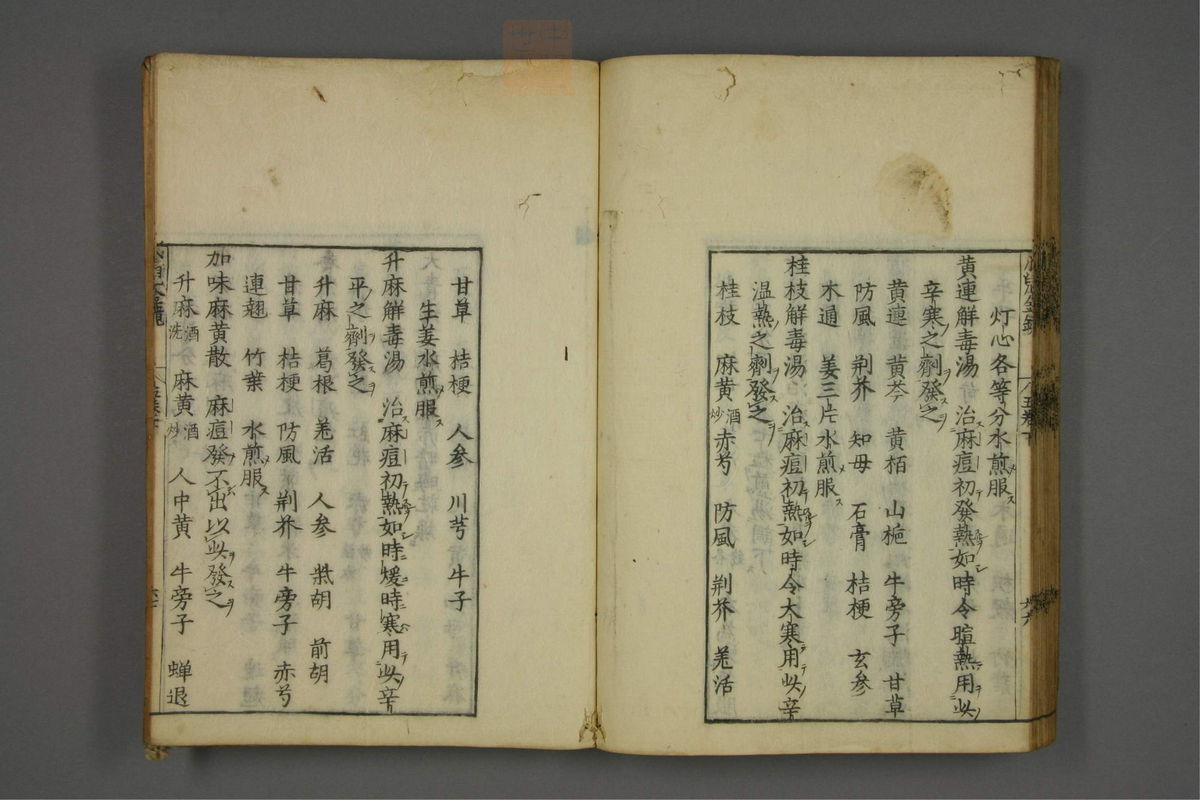 灯心各等分水煎服ス
黄連解毒湯 治麻痘初發熱如時令暄熱用此
辛寒之劑發之
黄連 黄芩 黄栢 山梔 牛旁子 甘草
防風 荆芥 知母 石膏 桔梗 玄参
木通 姜三片水煎服ス
桂枝解毒湯 治麻痘初熱如時令大寒用此辛
温熱之劑發之
桂枝 麻黄酒炒 赤芍 防風 荆芥 羗活
甘草 桔梗 人参 川芎 牛子
生姜水煎服ス
升麻解毒湯 治麻痘初熱如時煖時寒用此辛
平之劑發之
升麻 葛根 羗活 人参 柴胡 前胡
甘草 桔梗 防風 荆芥 牛旁子 赤芍
連翹 竹葉 水煎服ス
加味麻黄散 麻痘發不出以此發之
升麻酒洗 麻黄酒炒 人中黄 牛旁子 蝉退